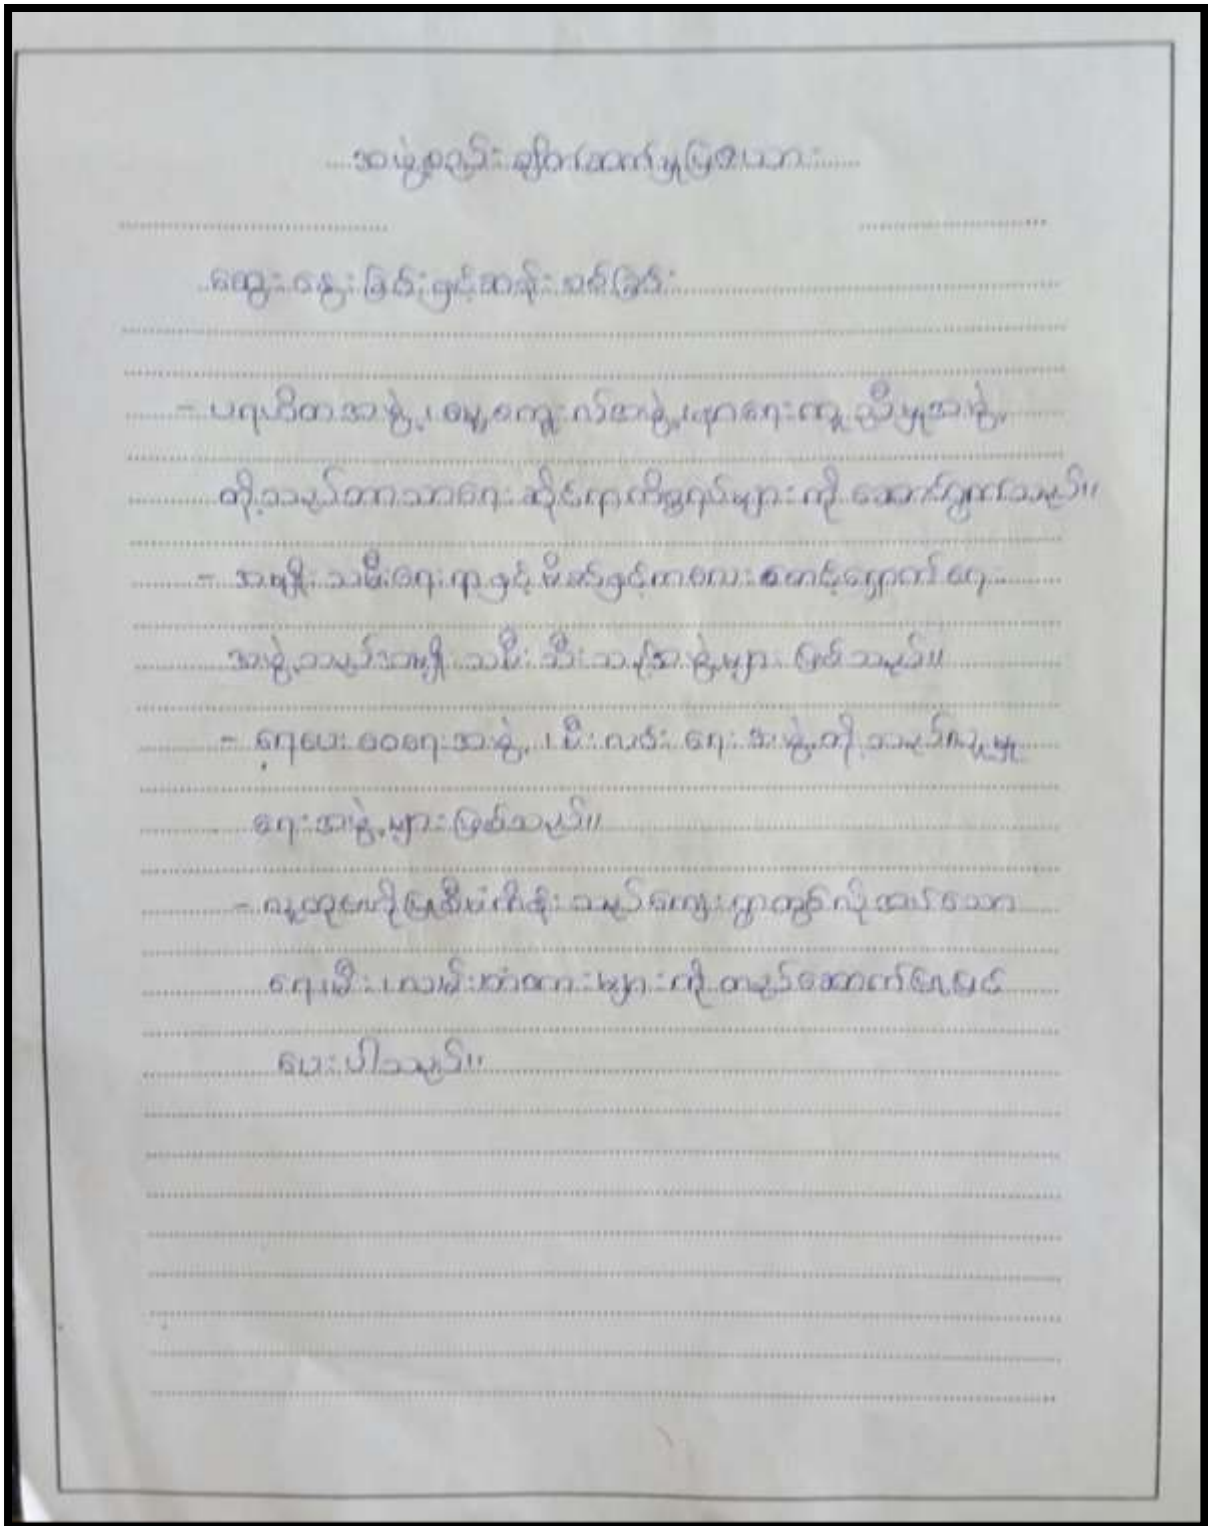 အဖွဲ့စည်းချိတ်ဆက်မှုပြဇယား
ဆွေးနွေးခြင်းနှင့်ဆန်းစစ်ခြင်း
- ပရဟိတအဖွဲ့၊ မွေ့ကျေးလပ်အဖွဲ့၊ နာရေးကူညီမှုအဖွဲ့
တို့သည်ဘာသာရေးဆိုင်ရာကိစ္စရပ်များကို ဆောင်ရွက်သည်။
- အမျိုးသမီးရေးရာနှင့် မိခင်နှင့်ကလေး စောင့်ရှောက်ရေ
အဖွဲ့သည်အမျိုးသမီးသီးသန့်အဖွဲ့များ ဖြစ်သည်။
- ရေပေးဝေရေးအဖွဲ့၊ မီးလင်းရေးအဖွဲ့တို့သည်လူမှု
ရေးအဖွဲ့များဖြစ်သည်။
- လူထုဗဟိုပြုစီမံကိန်းသည်ကျေးရွာတွင်လိုအပ်သော
ရေ၊မီး၊လမ်းတံတားများကို တည်ဆောက်
ပေးပါသည်။